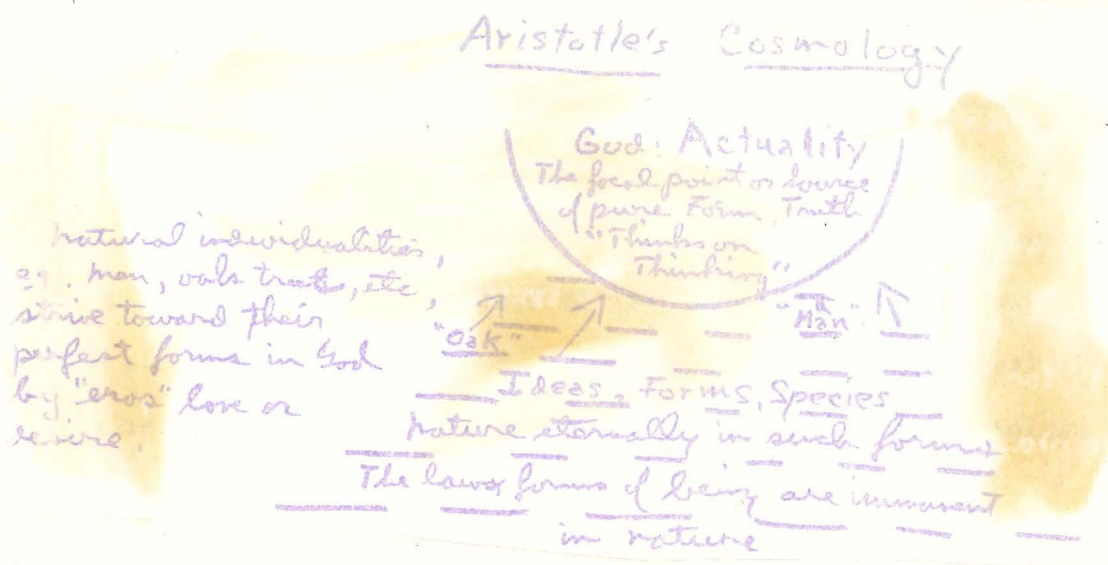 Aristotle's Cosmology
God: Actuality
The focal point or source
of pure Form, Truth
"Thinks on
Thinking"
natural individualities,
eg. man, oaks, etc,
strive toward their
perfect forms in God
by "eros" love or
desire.
"Oak"
"Man"
Ideas, Forms, Species
nature eternally in such forms
The laws, forms of being are immanent
in nature